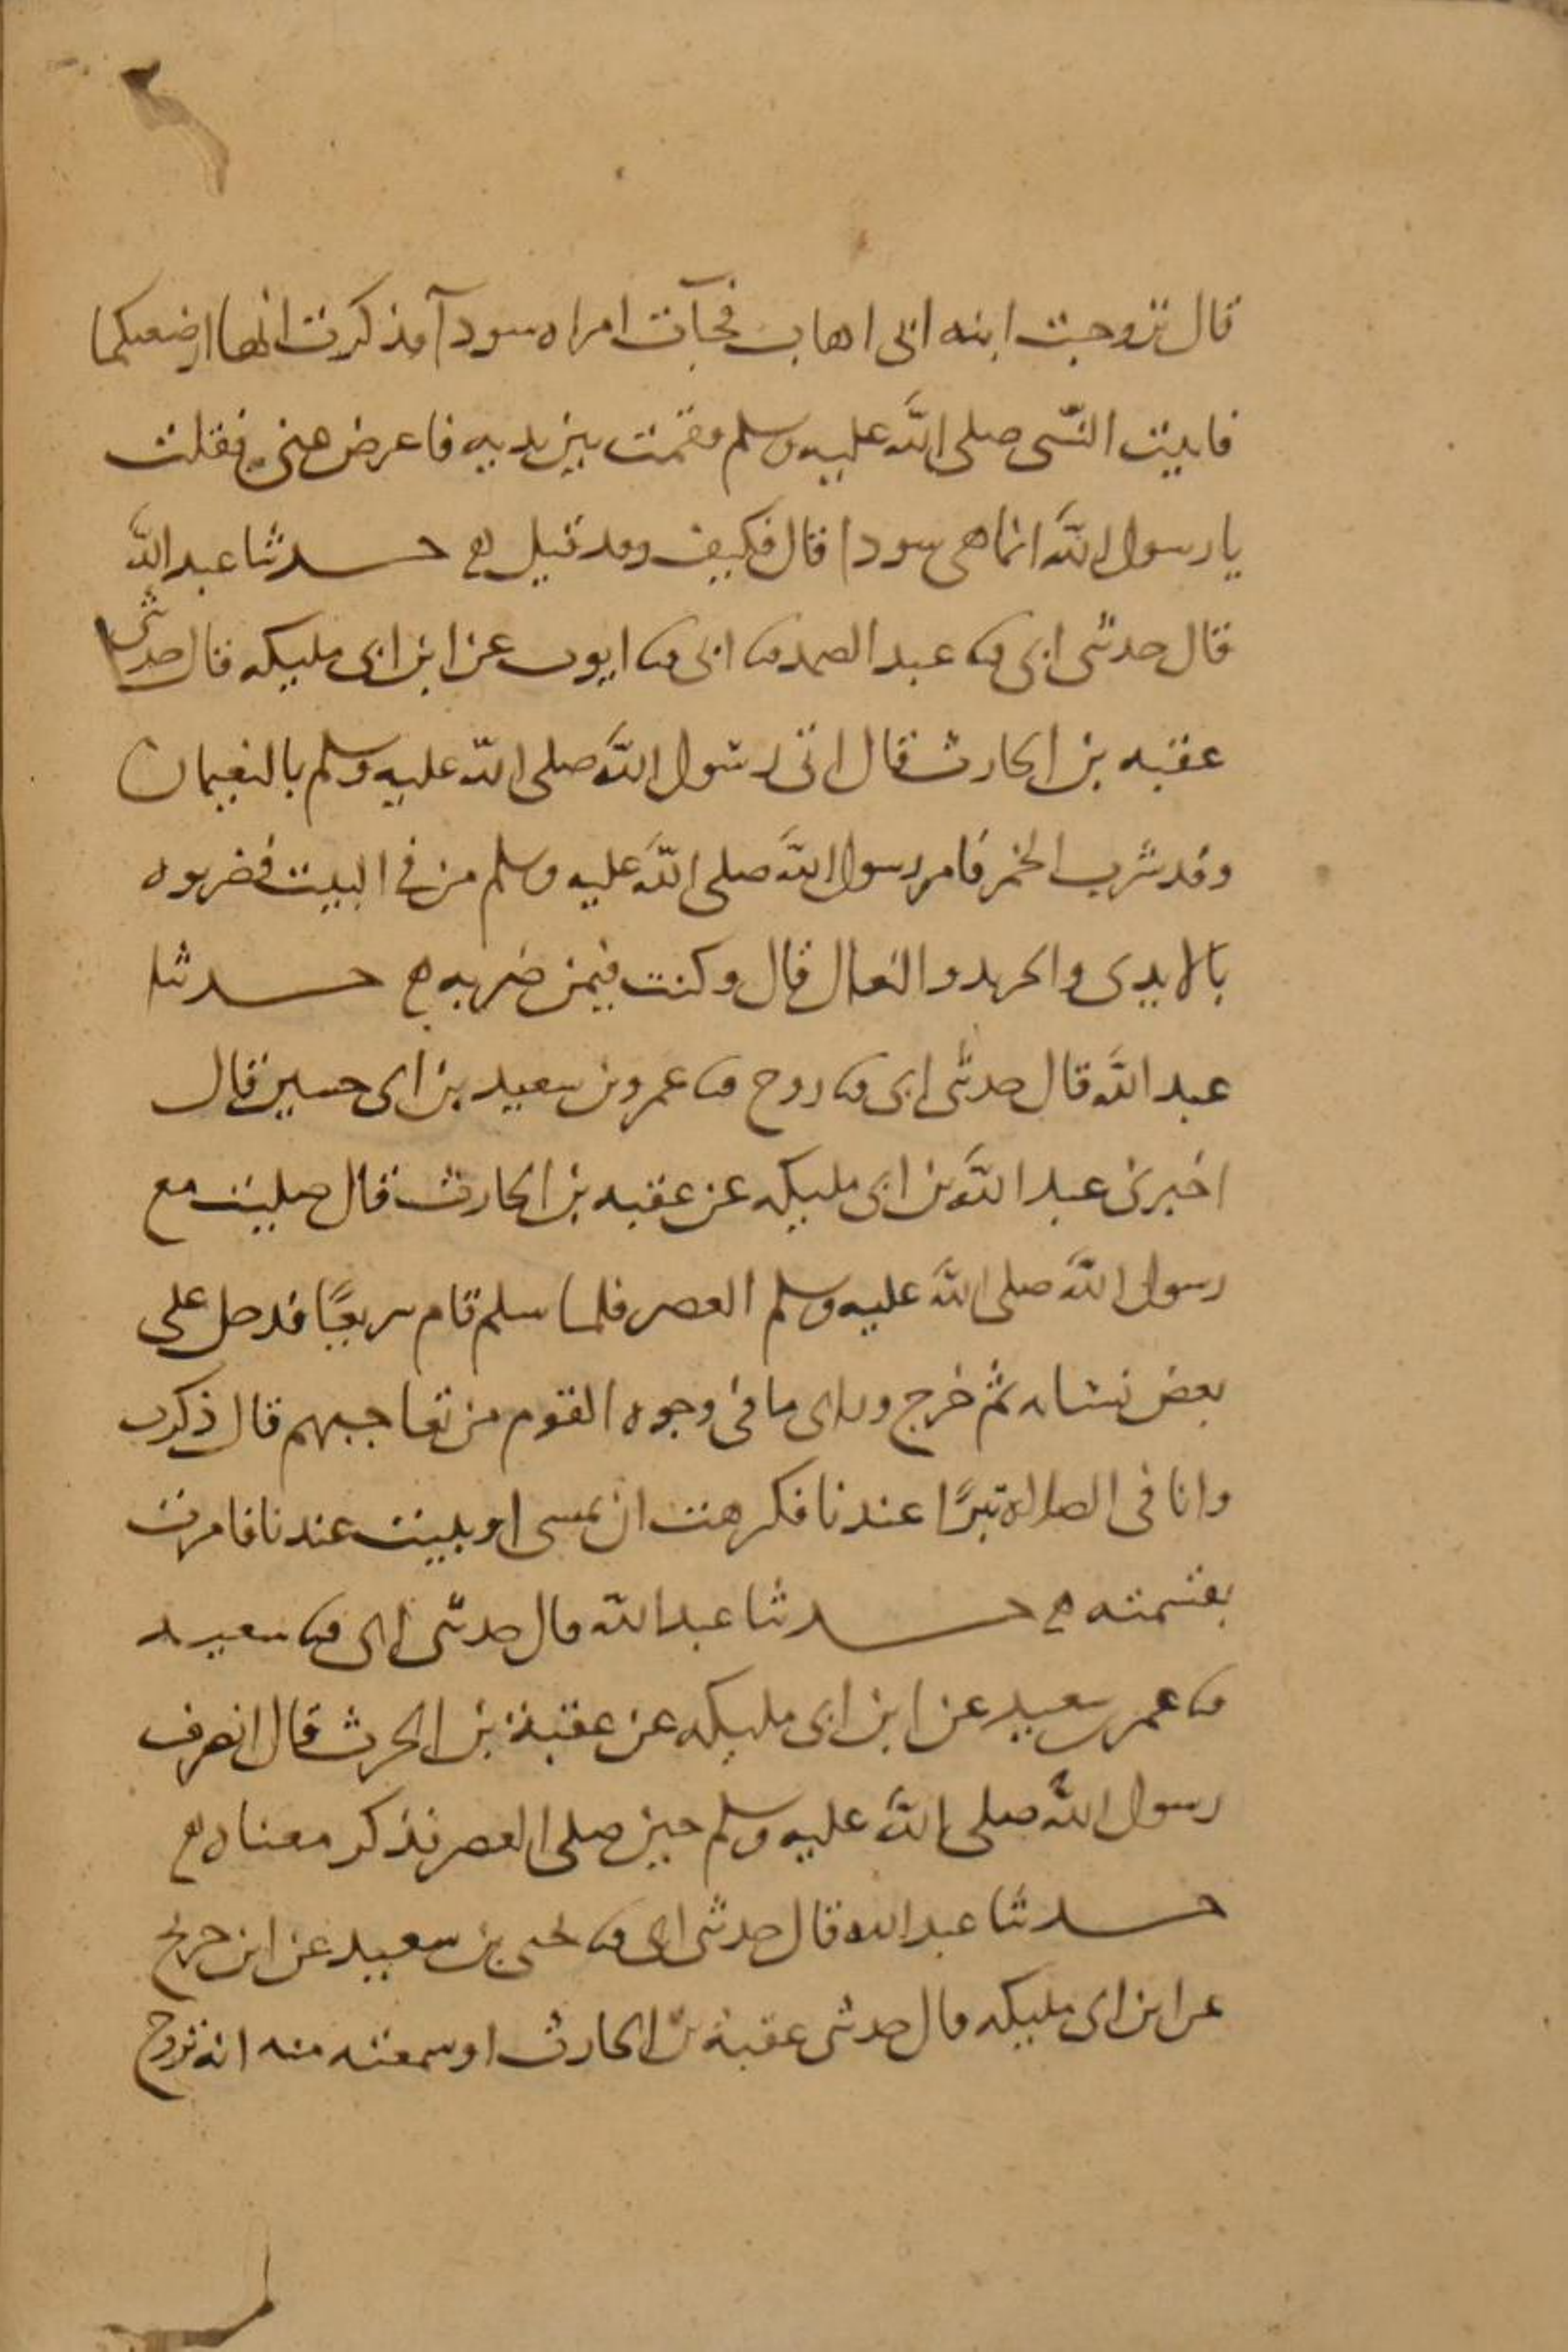 قال تزوجت ابنه ابى اهاب فجآت امراه سودآ فذكرت انها ارضعتكما
فاتيت النبى صلى الله عليه وسلم فقمت بين يديه فاعرض عنى فقلت
يا رسول الله انما هى سودا قال فكيف وقد قيل حدثنا عبد الله
قال حدثنى ابى ثنا عبد الصمد ثنا ابى ثنا ايوب عن ابن ابى مليكه قال حدثنى
عقبه بن الحارث قال اتى رسول الله صلى الله عليه وسلم بالنعيمان
وقد شرب الخمر فامر رسول الله صلى الله عليه وسلم من فى البيت فضربوه
بالايدى والجريد والنعال قال وكنت فيمن ضربه حدثنا
عبد الله قال حدثنى ابى ثنا روح ثنا عمر بن سعيد بن ابى حسين قال
اخبرنى عبد الله بن ابى مليكه عن عقبه بن الحارث قال صليت مع
رسول الله صلى الله عليه وسلم العصر فلما سلم قام سريعًا فدخل على
بعض نسائه ثم خرج وراى ما فى وجوه القوم من تعاجبهم قال ذكرت
وانا فى الصلاة تبرًا عندنا فكرهت ان يمسى او يبيت عندنا فامرت
بقسمته حدثنا عبد الله قال حدثنى ابى ثنا سعيد
ثنا عمر بن سعيد عن ابن ابى مليكه عن عقبة بن الحرث قال انصرف
رسول الله صلى الله عليه وسلم حين صلى العصر فذكر معناه
حدثنا عبد الله قال حدثنى ابى ثنا يحيى بن سعيد عن ابن جريج
عن ابن ابى مليكه قال حدثنى عقبة بن الحارث او سمعته منه انه تزوج